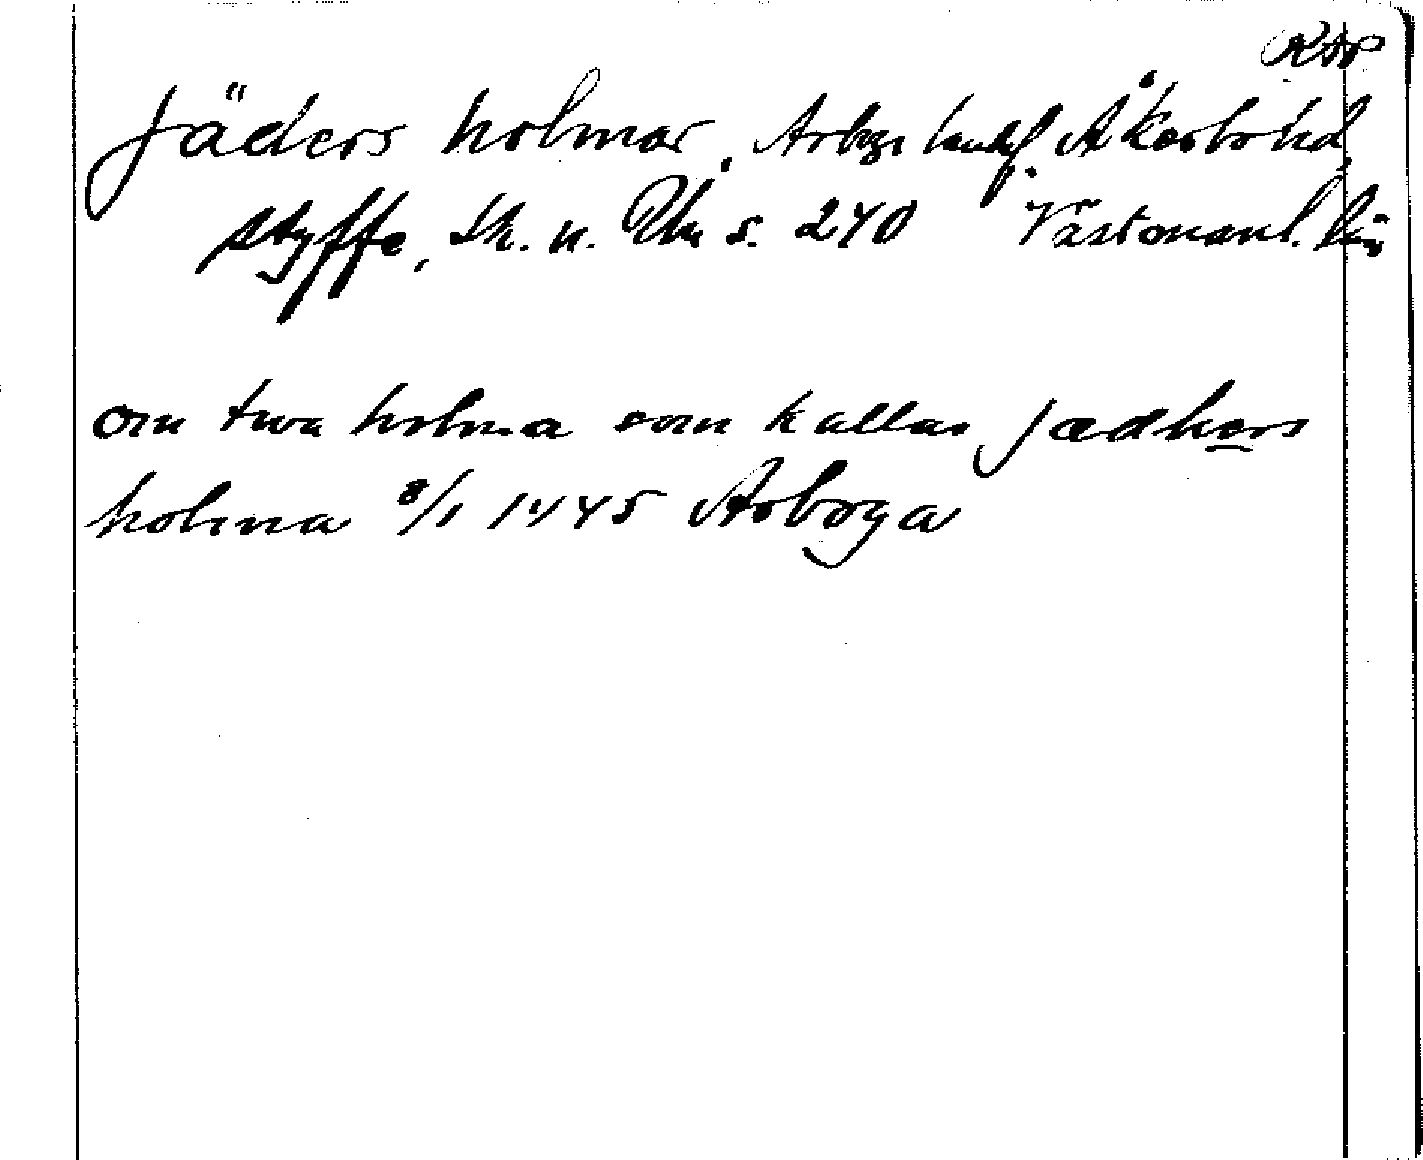 RAP
Jäders holmar, Arboga landsf. Åkerbo hd,
Styffe, Sk. u. Un s. 240 Västmanl. län
om twa holma som kallas Jædhers
holma 8/1 1445 Arboga